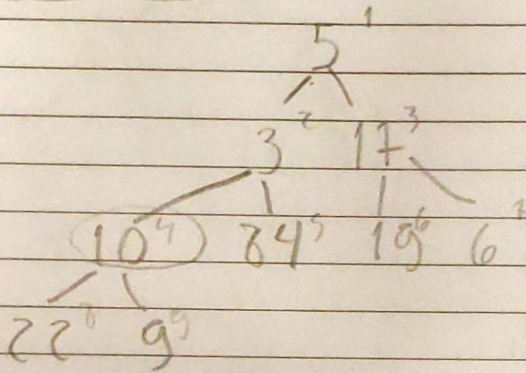 5 1
3 2 17 3
10 4 84 5 19 6 6 7
22 8 9 9